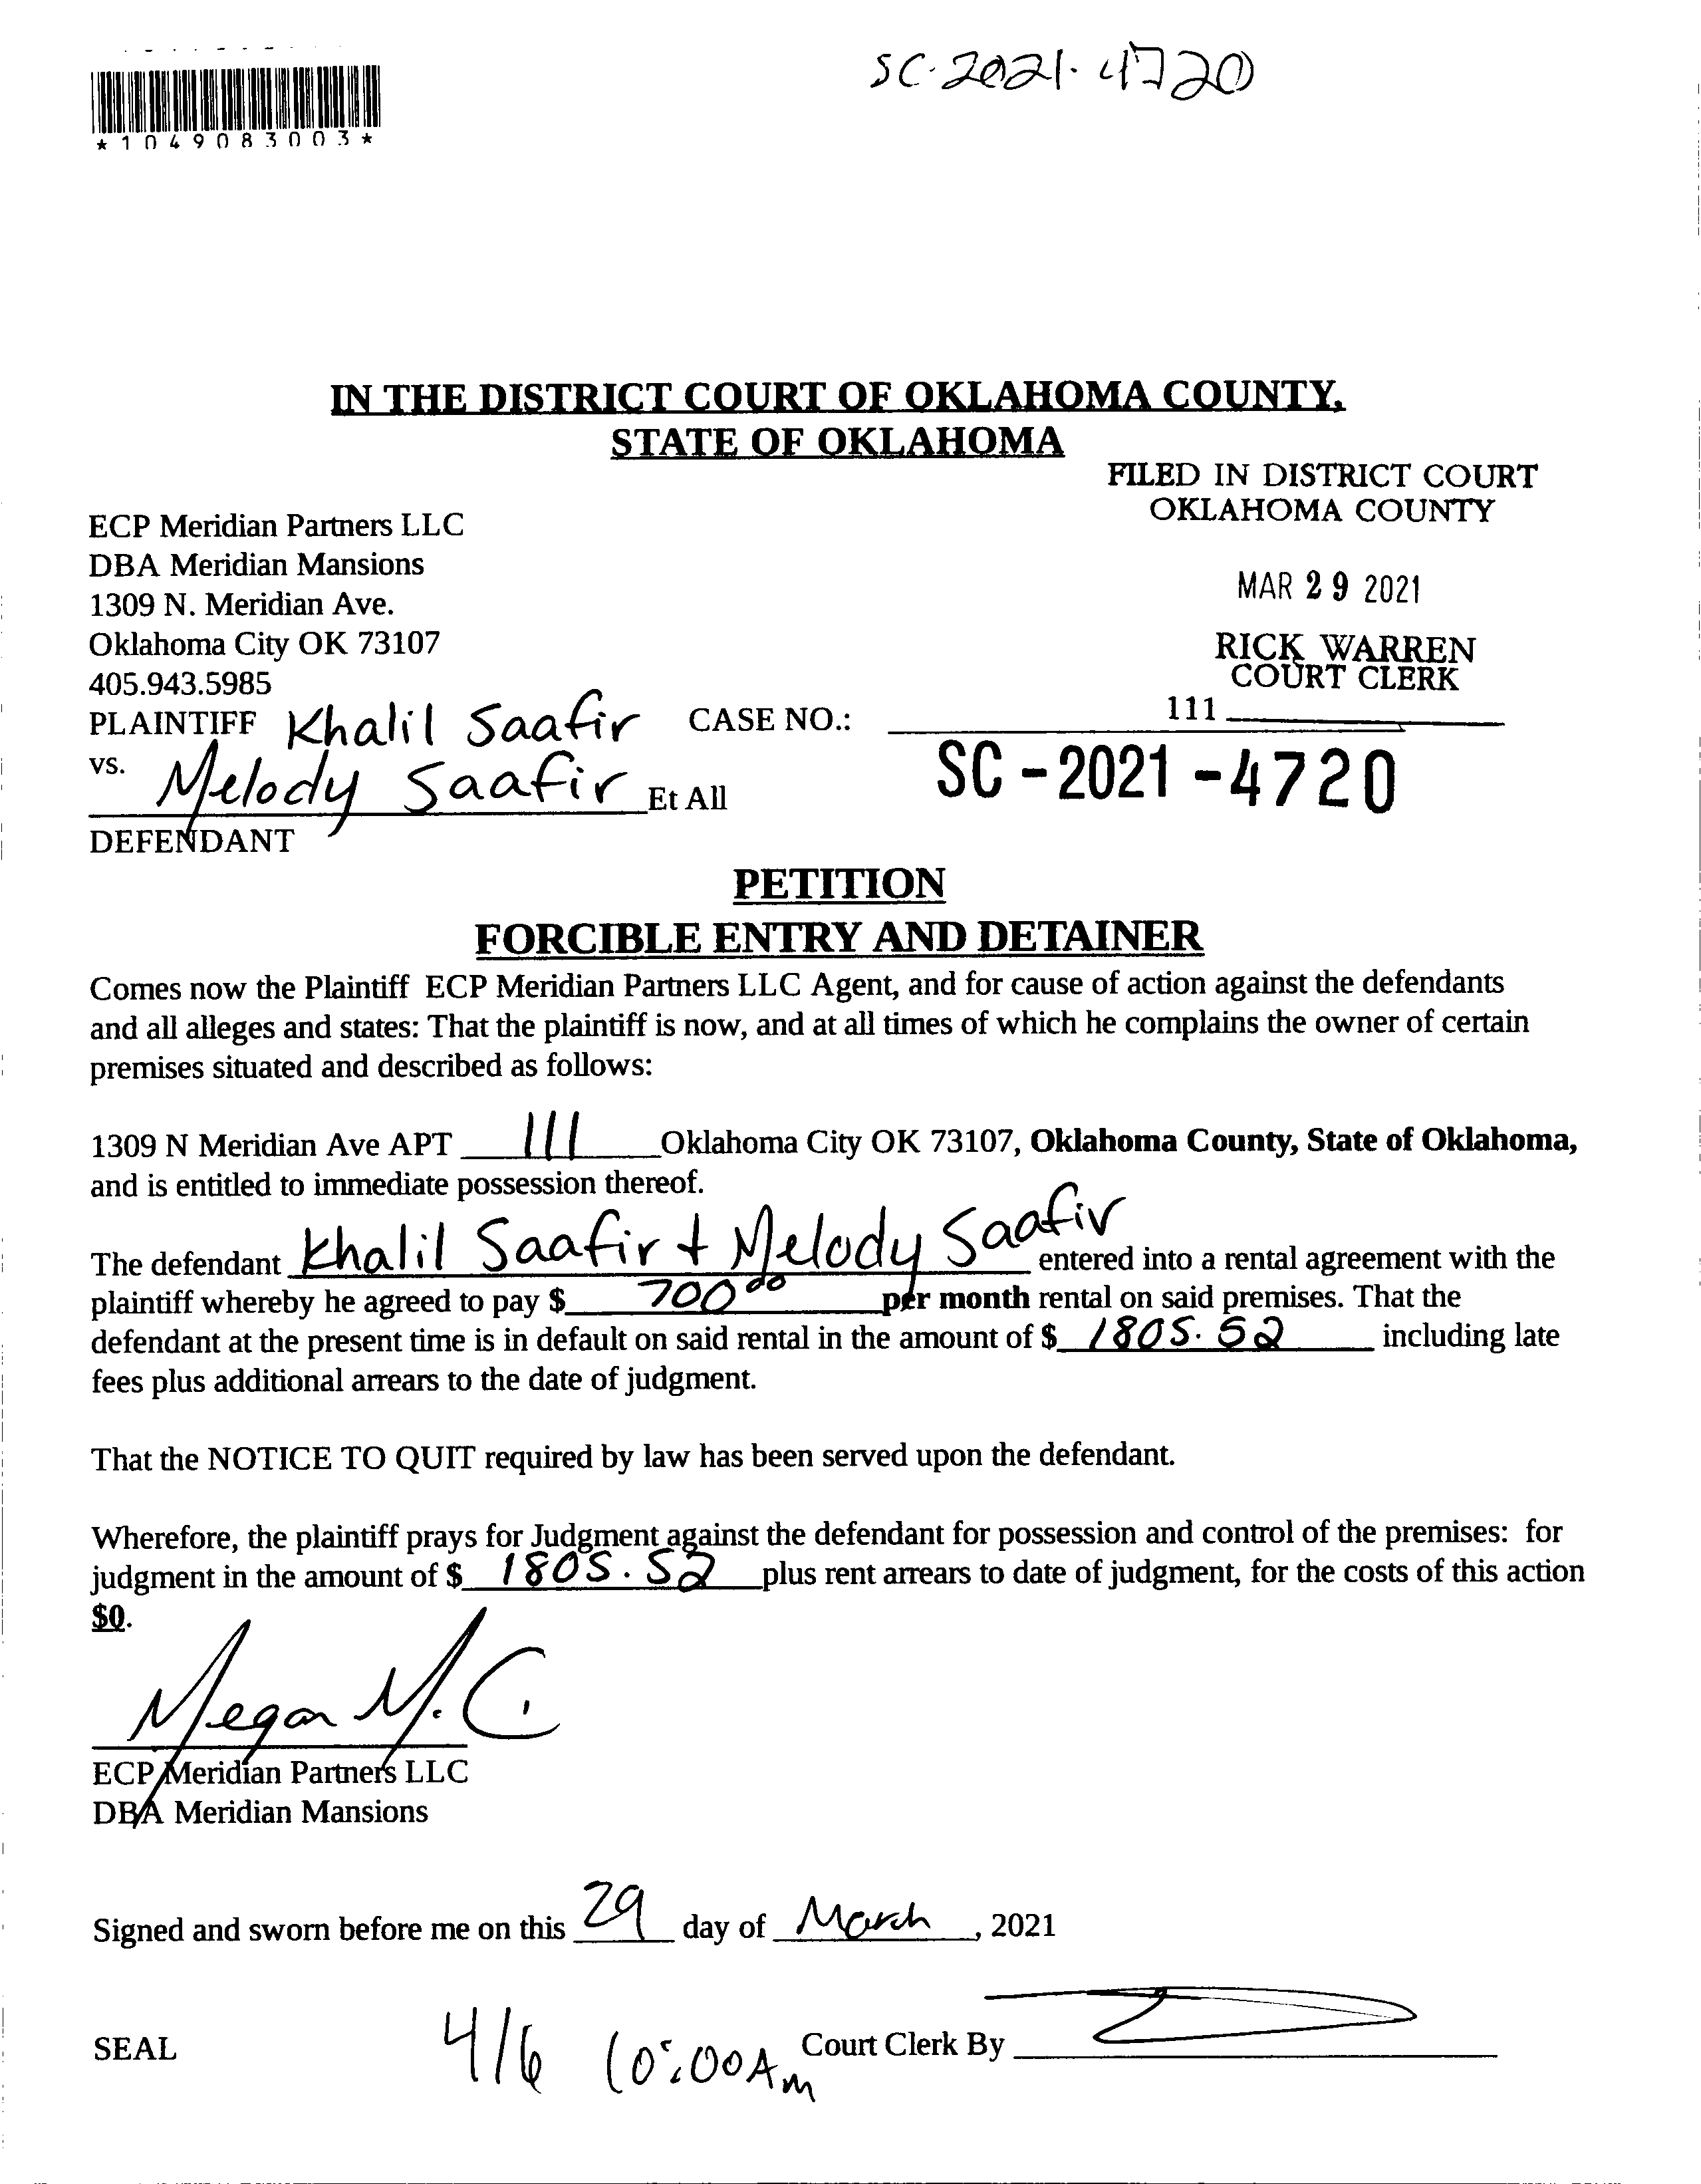 SC-2021-4720
*1049083003*
IN THE DISTRICT COURT OF OKLAHOMA COUNTY,
STATE OF OKLAHOMA
FILED IN DISTRICT COURT
OKLAHOMA COUNTY
MAR 29 2021
RICK WARREN
COURT CLERK
111
ECP Meridian Partners LLC
DBA Meridian Mansions
1309 N. Meridian Ave.
Oklahoma City OK 73107
405.943.5985
PLAINTIFF Khalil Saafir CASE NO.:
vs. Melody Saafir Et All
SC-2021-4720
DEFENDANT
PETITION
FORCIBLE ENTRY AND DETAINER
Comes now the Plaintiff ECP Meridian Partners LLC Agent, and for cause of action against the defendants
and all alleges and states: That the plaintiff is now, and at all times of which he complains the owner of certain
premises situated and described as follows:
1309 N Meridian Ave APT 111 Oklahoma City OK 73107, Oklahoma County, State of Oklahoma,
and is entitled to immediate possession thereof.
The defendant Khalil Saafir + Melody Saafir entered into a rental agreement with the
plaintiff whereby he agreed to pay $ 700 00 per month rental on said premises. That the
defendant at the present time is in default on said rental in the amount of $ 1805.52 including late
fees plus additional arrears to the date of judgment.
That the NOTICE TO QUIT required by law has been served upon the defendant.
Wherefore, the plaintiff prays for Judgment against the defendant for possession and control of the premises: for
judgment in the amount of $ 1805.52 plus rent arrears to date of judgment, for the costs of this action
$0.
Megan M. C.
ECP Meridian Partners LLC
DBA Meridian Mansions
Signed and sworn before me on this 29 day of March, 2021
SEAL 4/6 10:00AM Court Clerk By